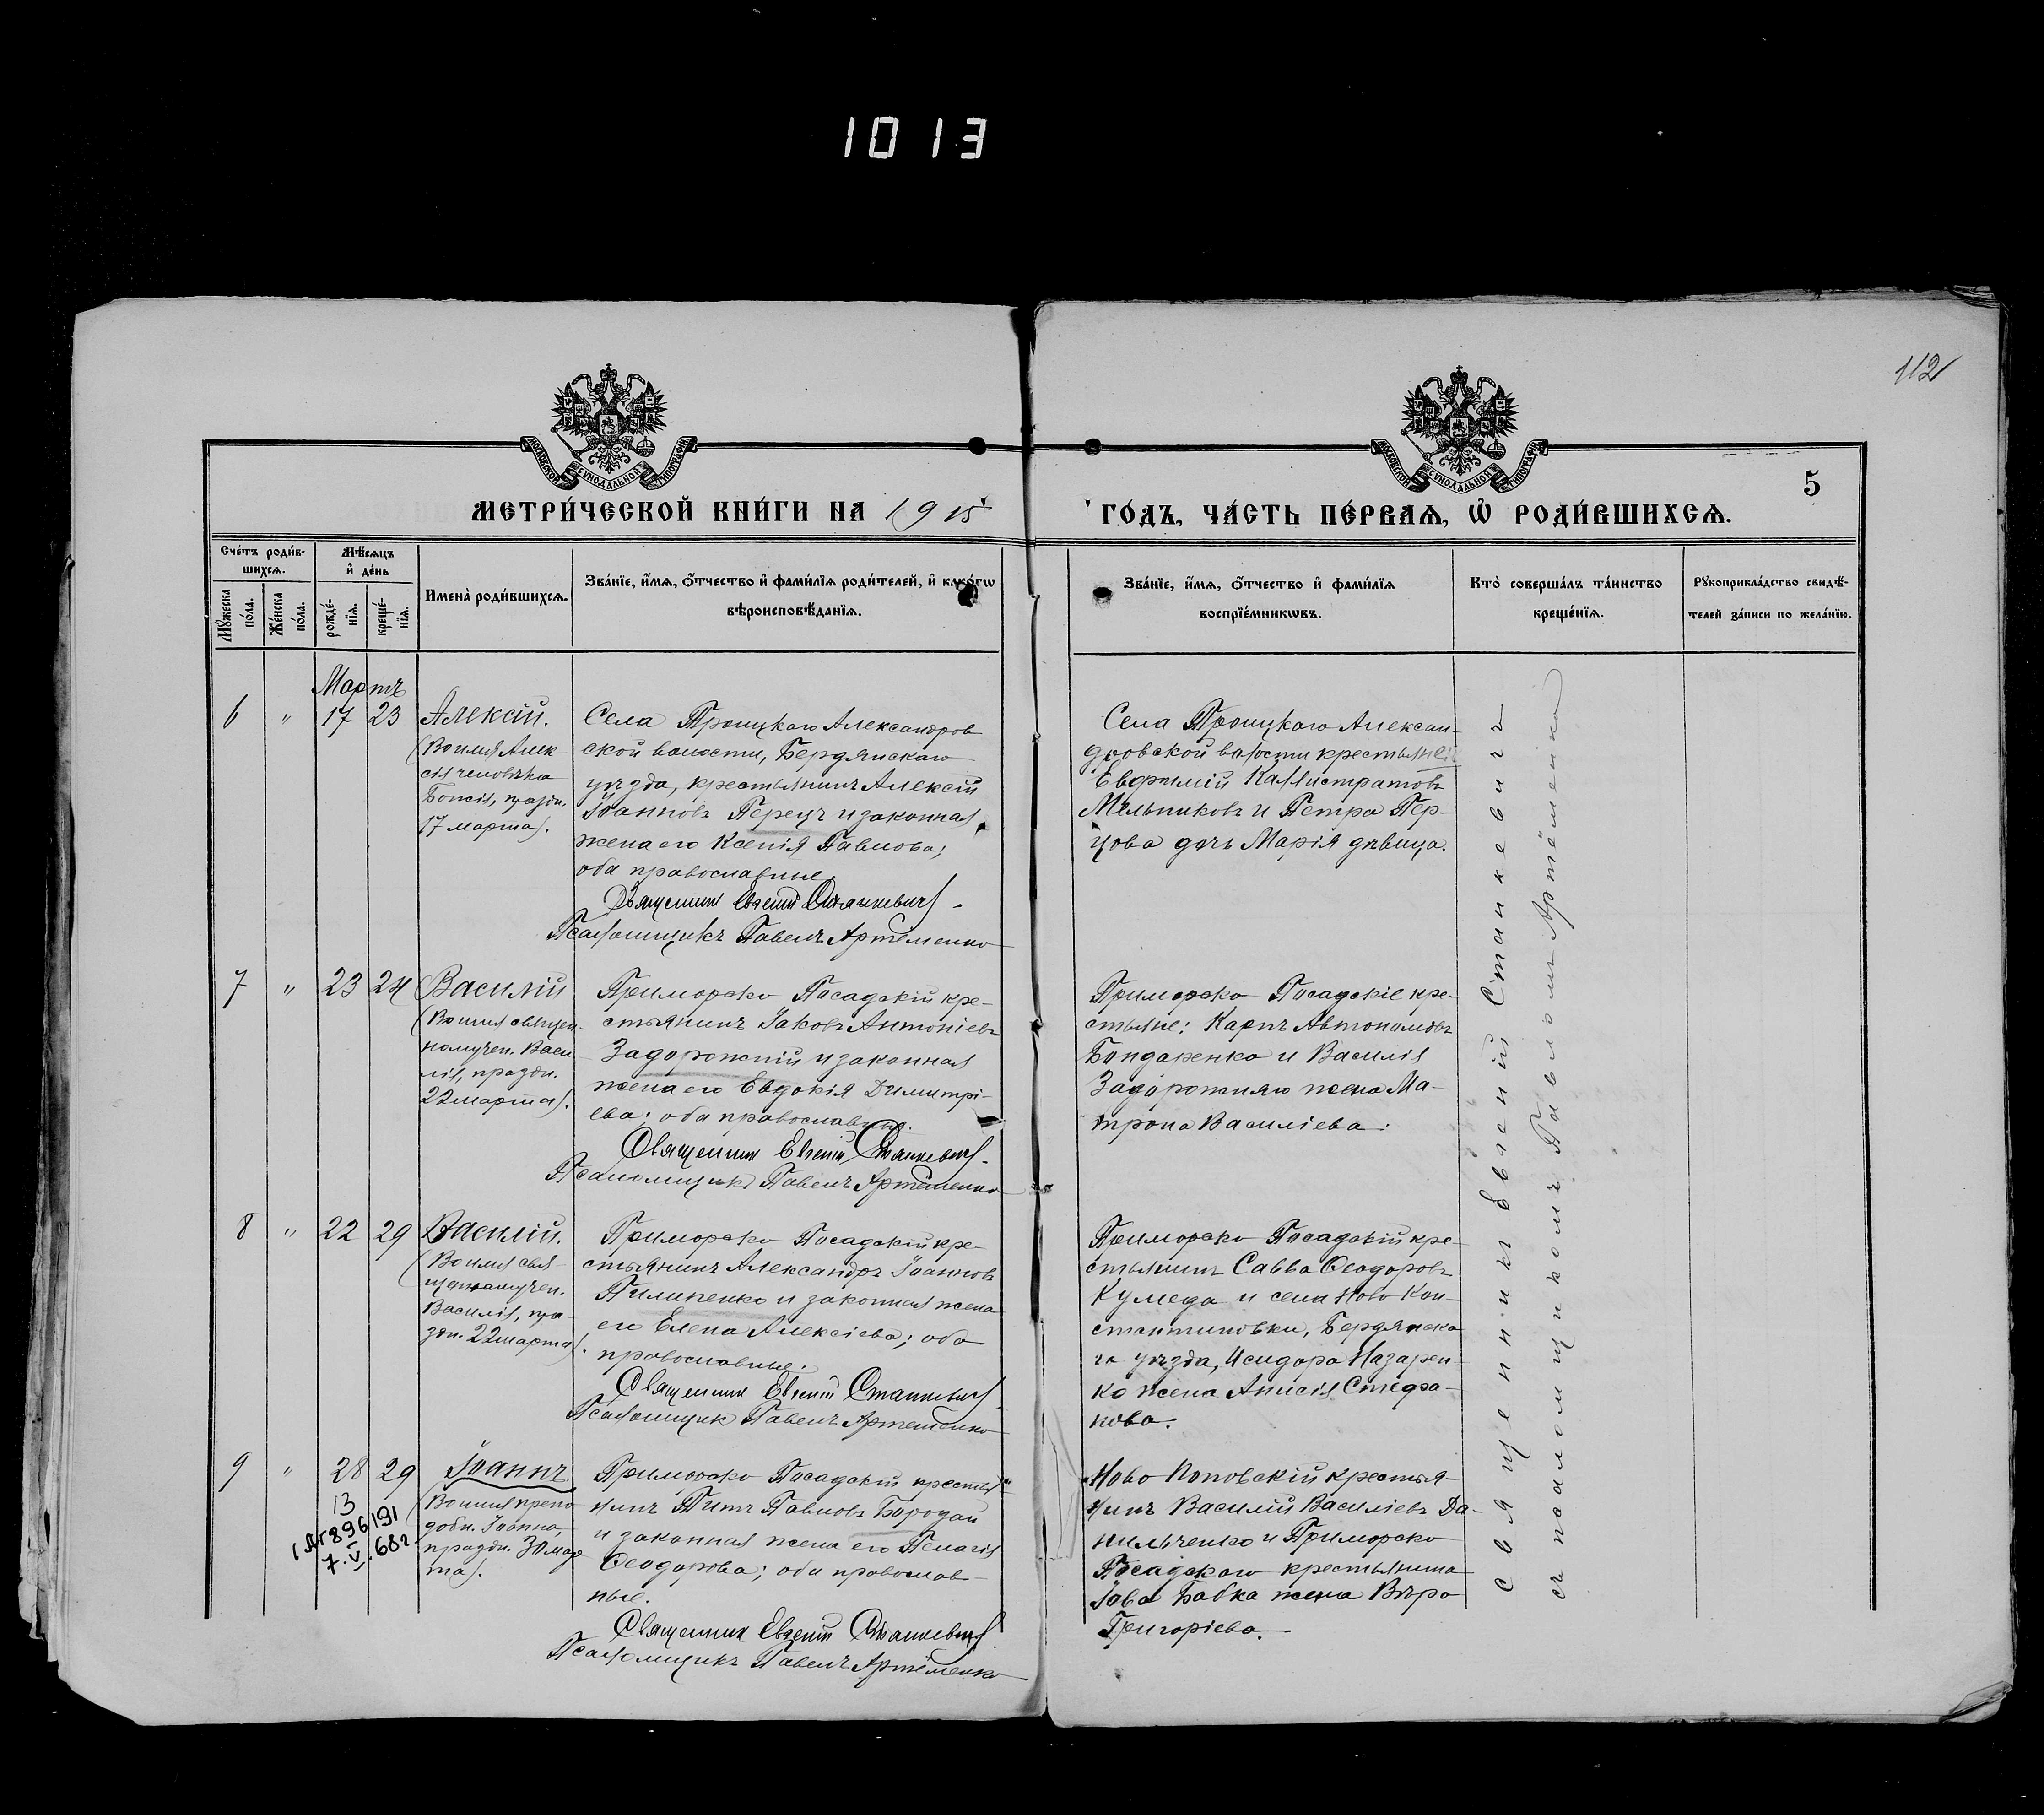 1013
112
МОСКОВСКОЙ СѴНОДАЛЬНОЙ ТИПОГРАФІИ
МОСКОВСКОЙ СѴНОДАЛЬНОЙ ТИПОГРАФІИ
5
МЕТРИ́ЧЕСКОЙ КНИ́ГИ НА 1915 ГО́ДЪ, ЧА́СТЬ ПЕ́РВАѦ, Ѡ҆ РОДИ́ВШИХСѦ.
Сче́тъ роди́в-
шихсѧ.
Мѣ́сѧцъ
и҆ де́нь
Мꙋ́жеска
по́ла.
Же́нска
по́ла.
рожде́-
нїѧ.
креще́-
нїѧ.
Имена̀ роди́вшихсѧ.
Зва́нїе, и҆́мѧ, ѻ҆́тчество и҆ фами́лїѧ роди́телей, и҆ како́гѡ
вѣроисповѣ́данїѧ.
Зва́нїе, и҆́мѧ, ѻ҆́тчество и҆ фами́лїѧ
воспрїе́мникѡвъ.
Кто̀ соверша́лъ та́инство
креще́нїѧ.
Рꙋкоприкла́дство свидѣ́-
телей за́писи по жела́нїю.
Мартъ
6 " 17 23 Алексій.
(Во имя Алек-
сія человѣка
Божія, праздн.
17 марта).
Села Троицкаго Александров
ской волости, Бердянскаго
уѣзда, крестьянинъ Алексій
Іоанновъ Перецъ и законная
жена его Ксенія Павлова;
оба православные.
Священникъ Евгеній Станкевичъ.
Псаломщикъ Павелъ Артёменко
Села Троицкаго Алексан-
дровской волости крестьяне:
Евфимій Каллистратовъ
Мельниковъ и Петра Пер-
цова дочь Марія дѣвица.
7 " 23 24 Василій
(Во имя священ-
номучен. Васи
лія, праздн.
22 марта).
Приморско Посадскій кре-
стьянинъ Іаковъ Антоніевъ
Задорожній и законная
жена его Евдокія Димитрі-
ева; оба православн.
Священникъ Евгеній Станкевичъ.
Псаломщикъ Павелъ Артёменко
Приморско Посадскіе кре-
стьяне: Карпъ Автономовъ
Бондаренко и Василія
Задорожняго жена Ма-
трона Василіева.
8 " 22 29 Василій.
(Во имя свя-
щенномучен.
Василія, пра-
здн. 22 марта).
Приморско Посадскій кре-
стьянинъ Александръ Іоанновъ
Пилипенко и законная жена
его Елена Алексіева; оба
православные.
Священникъ Евгеній Станкевичъ
Псаломщикъ Павелъ Артеменко
Приморско Посадскій кре-
стьянинъ Савва Ѳеодоровъ
Кумеда и села Ново Кон-
стантиновки, Бердянска
го уѣзда, Исидора Назарен-
ко жена Анисія Стефа-
нова.
9 " 28 29 Іоаннъ.
(Во имя препо
добн. Іоанна,
праздн. 30 мар
та).
7.V.68г.
Приморско Посадскій крестья-
нинъ Титъ Павловъ Бородай
и законная жена его Пелагія
Ѳеодорова; оба православ-
ные.
Священникъ Евгеній Станкевичъ
Псаломщикъ Павелъ Артёменко
Ново Поповскій крестья-
нинъ Василій Василіевъ Да-
нильченко и Приморско
Посадскаго крестьянина
Іова Бабка жена Вѣра
Григоріева.
Священникъ Евгеній Станкевичъ
съ псаломщикомъ Павломъ Артёменко